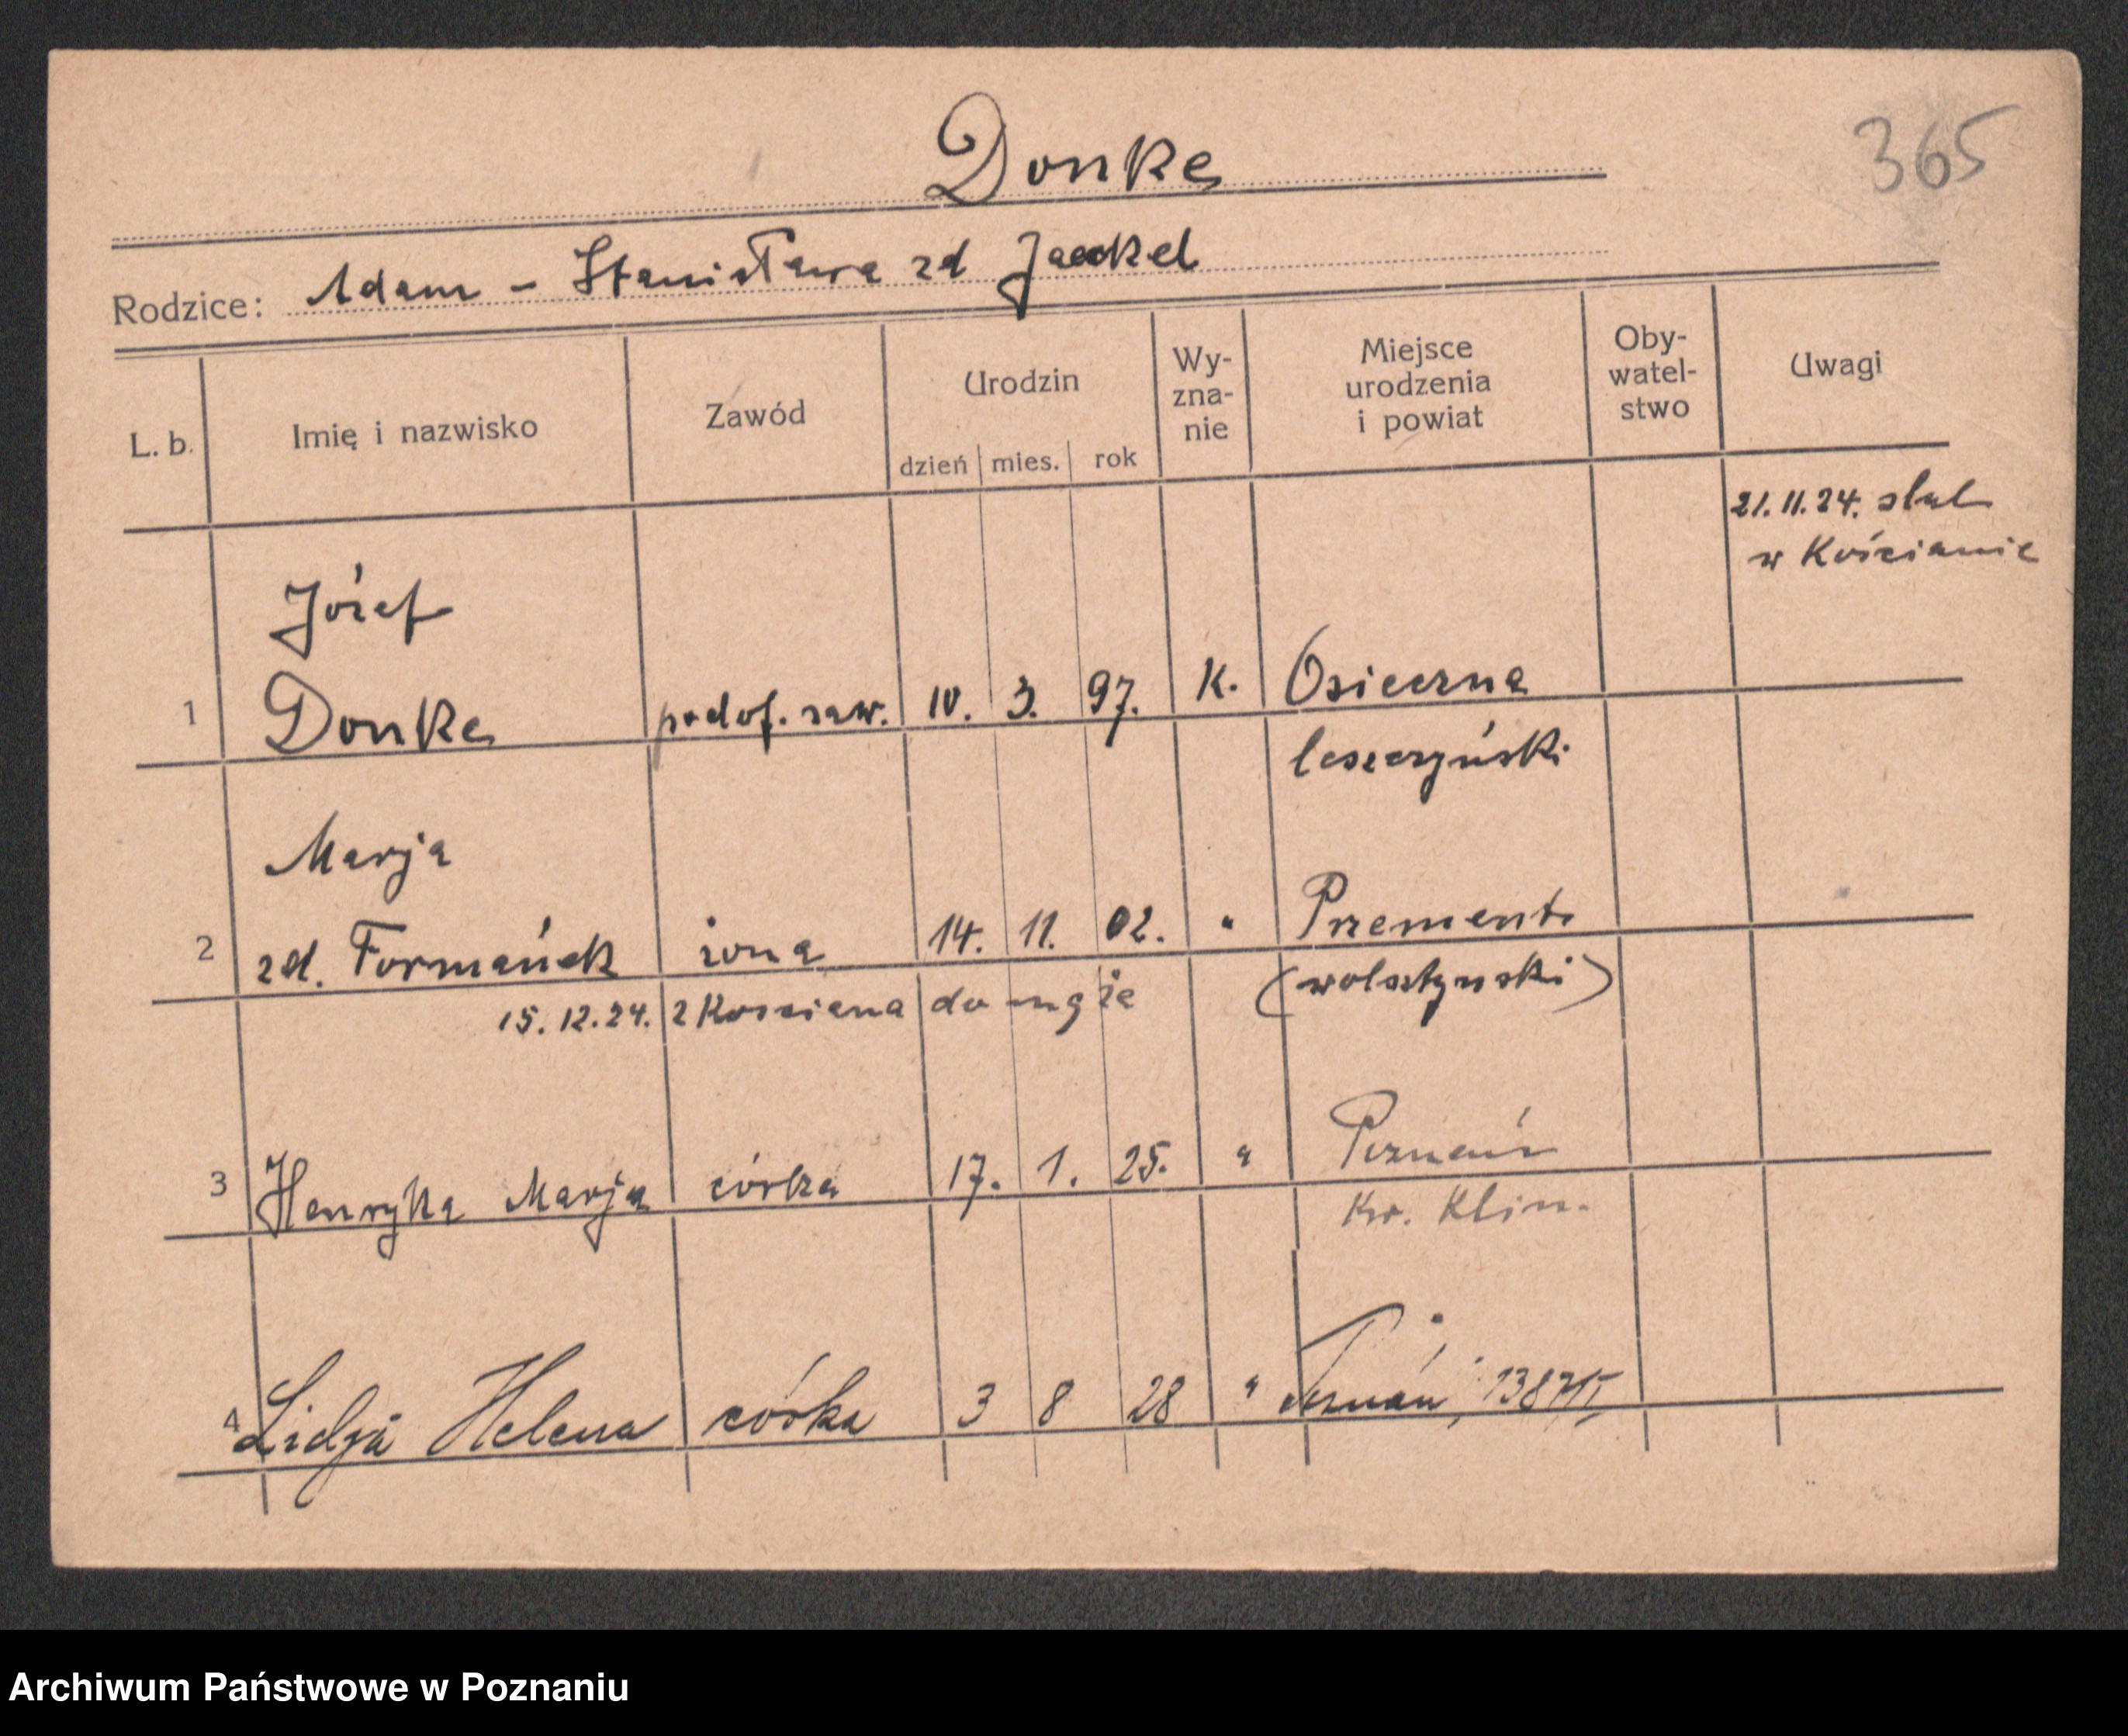 Donke
365
Rodzice: Adam - Stanisława zd Jaeckel
L. b. Imię i nazwisko Zawód Urodzin dzień mies. rok Wy-zna-nie Miejsce urodzenia i powiat Oby-watel-stwo Uwagi
21.11.24. slub
w Kościanie
Józef
1 Donke podof. zaw. 10. 3. 97. K. Osieczna
leszczyński
Marja
2 zd. Formanek żona 14. 11. 02. " Przement
15.12.24. z Kosciana do męża (wolsztynski)
Poznań
3 Henryka Marja córka 17. 1. 25. "
Kr. Klin.
4 Lidja Helena córka 3 8 28 " Poznań,
Archiwum Państwowe w Poznaniu